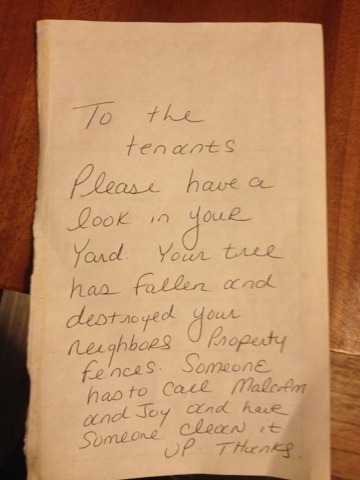 To the
tenants
Please have a
look in your
Yard. Your tree
has fallen and
destroyed your
neighbors Property
fences. Someone
has to call Malcolm
and Joy and have
Someone clean it
UP. THanks.